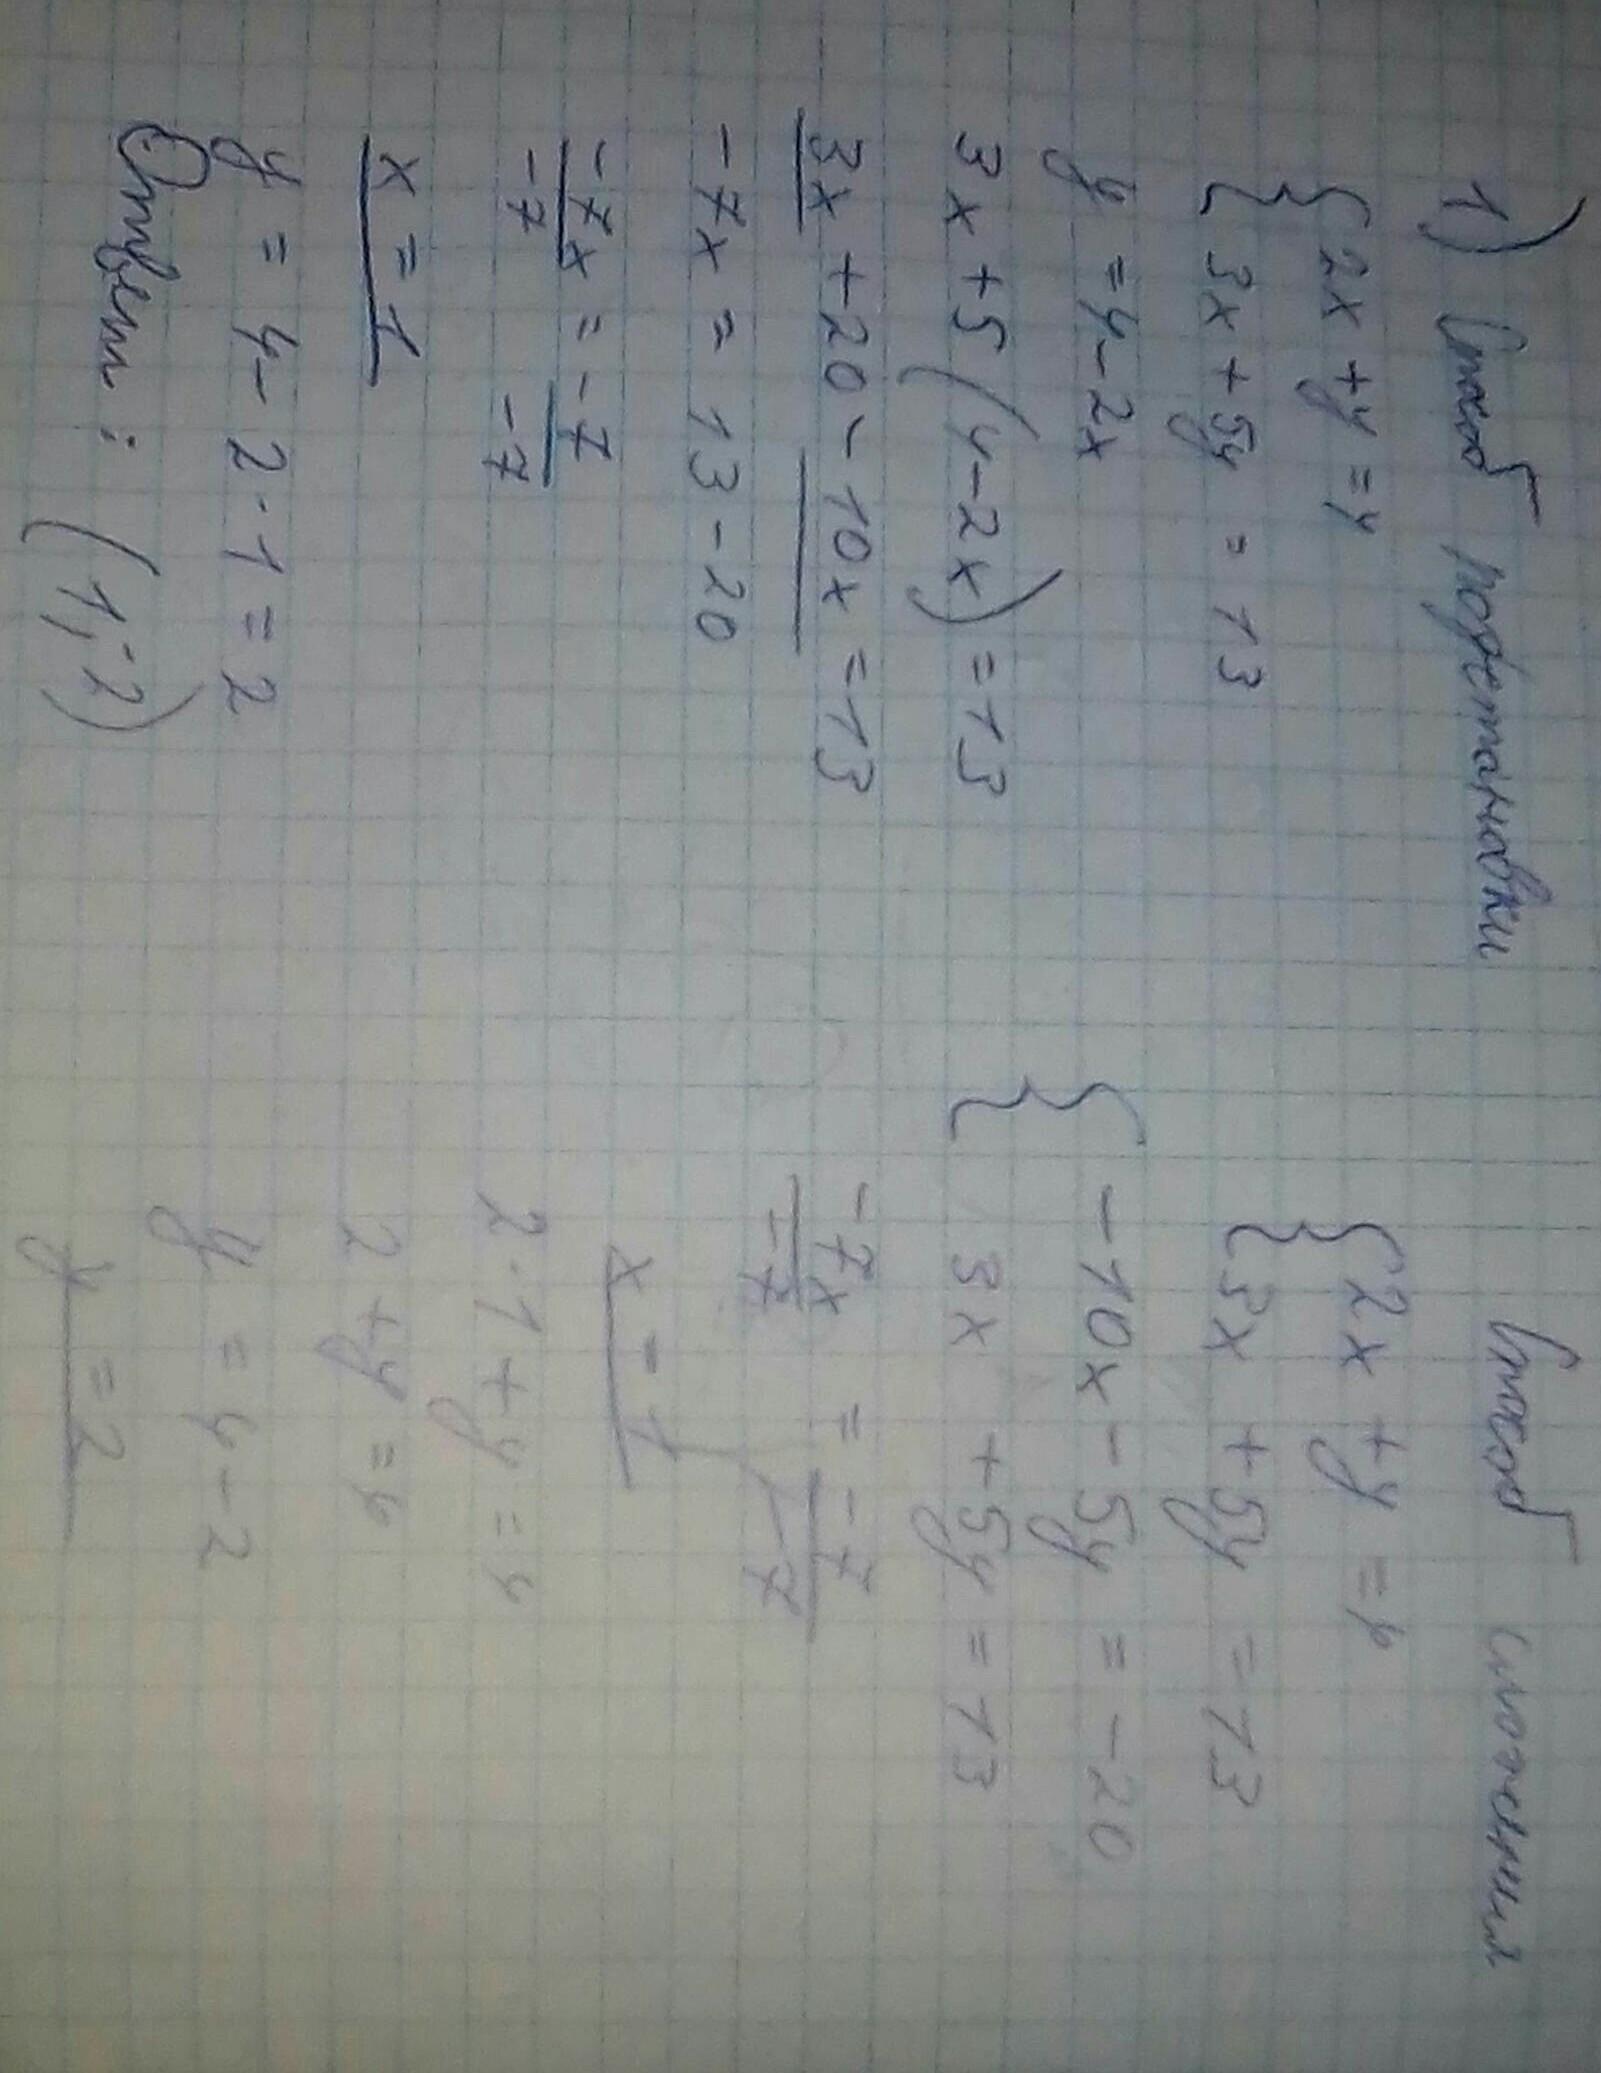 1) Способ подстановки
{ 2x + y = 4
{ 3x + 5y = 13
y = 4 - 2x
3x + 5(4 - 2x) = 13
3x + 20 - 10x = 13
-7x = 13 - 20
-7x/-7 = -7/-7
x = 1
y = 4 - 2·1 = 2
Ответ: (1; 2)
Способ сложения
{ 2x + y = 4
{ 3x + 5y = 13
{ -10x - 5y = -20
{ 3x + 5y = 13
-7x/-7 = -7/-7
x = 1
2·1 + y = 4
2 + y = 4
y = 4 - 2
y = 2